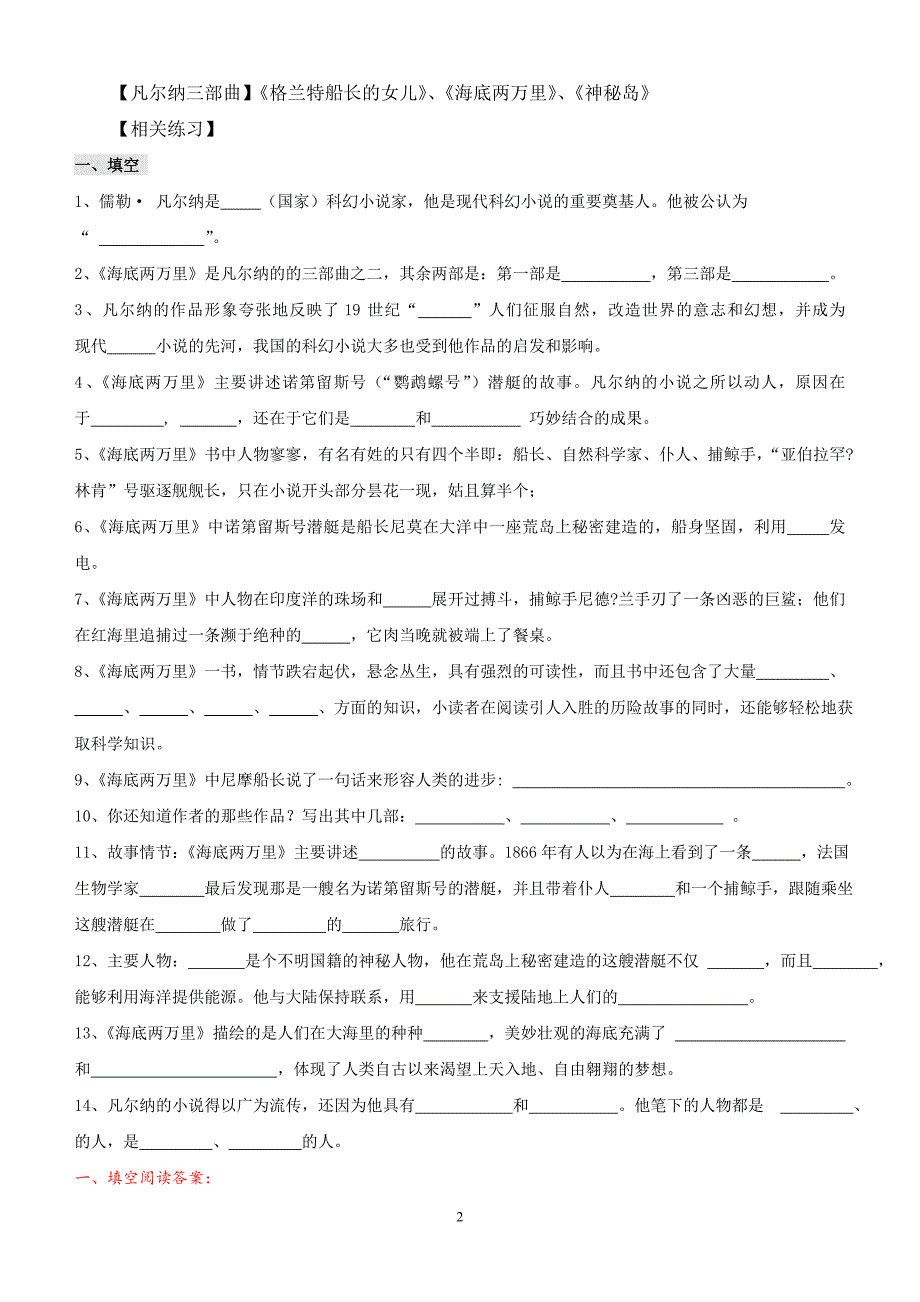 【凡尔纳三部曲】《格兰特船长的女儿》、《海底两万里》、《神秘岛》
【相关练习】
一、填空
1、儒勒· 凡尔纳是_____（国家）科幻小说家，他是现代科幻小说的重要奠基人。他被公认为
“ _____________”。
2、《海底两万里》是凡尔纳的的三部曲之二，其余两部是：第一部是___________，第三部是____________。
3、凡尔纳的作品形象夸张地反映了 19 世纪“_______”人们征服自然，改造世界的意志和幻想，并成为
现代______小说的先河，我国的科幻小说大多也受到他作品的启发和影响。
4、《海底两万里》主要讲述诺第留斯号（“鹦鹉螺号”）潜艇的故事。凡尔纳的小说之所以动人，原因在
于_________, _______，还在于它们是________和___________ 巧妙结合的成果。
5、《海底两万里》书中人物寥寥，有名有姓的只有四个半即：船长、自然科学家、仆人、捕鲸手，“亚伯拉罕?
林肯”号驱逐舰舰长，只在小说开头部分昙花一现，姑且算半个；
6、《海底两万里》中诺第留斯号潜艇是船长尼莫在大洋中一座荒岛上秘密建造的，船身坚固，利用_____发
电。
7、《海底两万里》中人物在印度洋的珠场和______展开过搏斗，捕鲸手尼德?兰手刃了一条凶恶的巨鲨；他们
在红海里追捕过一条濒于绝种的______，它肉当晚就被端上了餐桌。
8、《海底两万里》一书，情节跌宕起伏，悬念丛生，具有强烈的可读性，而且书中还包含了大量_________、
______、______、______、______、方面的知识，小读者在阅读引人入胜的历险故事的同时，还能够轻松地获
取科学知识。
9、《海底两万里》中尼摩船长说了一句话来形容人类的进步: _________________________________________。
10、你还知道作者的那些作品？写出其中几部：___________、___________、____________ 。
11、故事情节：《海底两万里》主要讲述__________的故事。1866 年有人以为在海上看到了一条______，法国
生物学家________最后发现那是一艘名为诺第留斯号的潜艇，并且带着仆人________和一个捕鲸手，跟随乘坐
这艘潜艇在________做了_________的_______旅行。
12、主要人物：_______是个不明国籍的神秘人物，他在荒岛上秘密建造的这艘潜艇不仅 _______，而且________，
能够利用海洋提供能源。他与大陆保持联系，用_______来支援陆地上人们的________________。
13、《海底两万里》描绘的是人们在大海里的种种________，美妙壮观的海底充满了 _____________________
和_______________________，体现了人类自古以来渴望上天入地、自由翱翔的梦想。
14、凡尔纳的小说得以广为流传，还因为他具有____________和___________。他笔下的人物都是 _________、
的人，是_________、_________的人。
一、填空阅读答案：
2